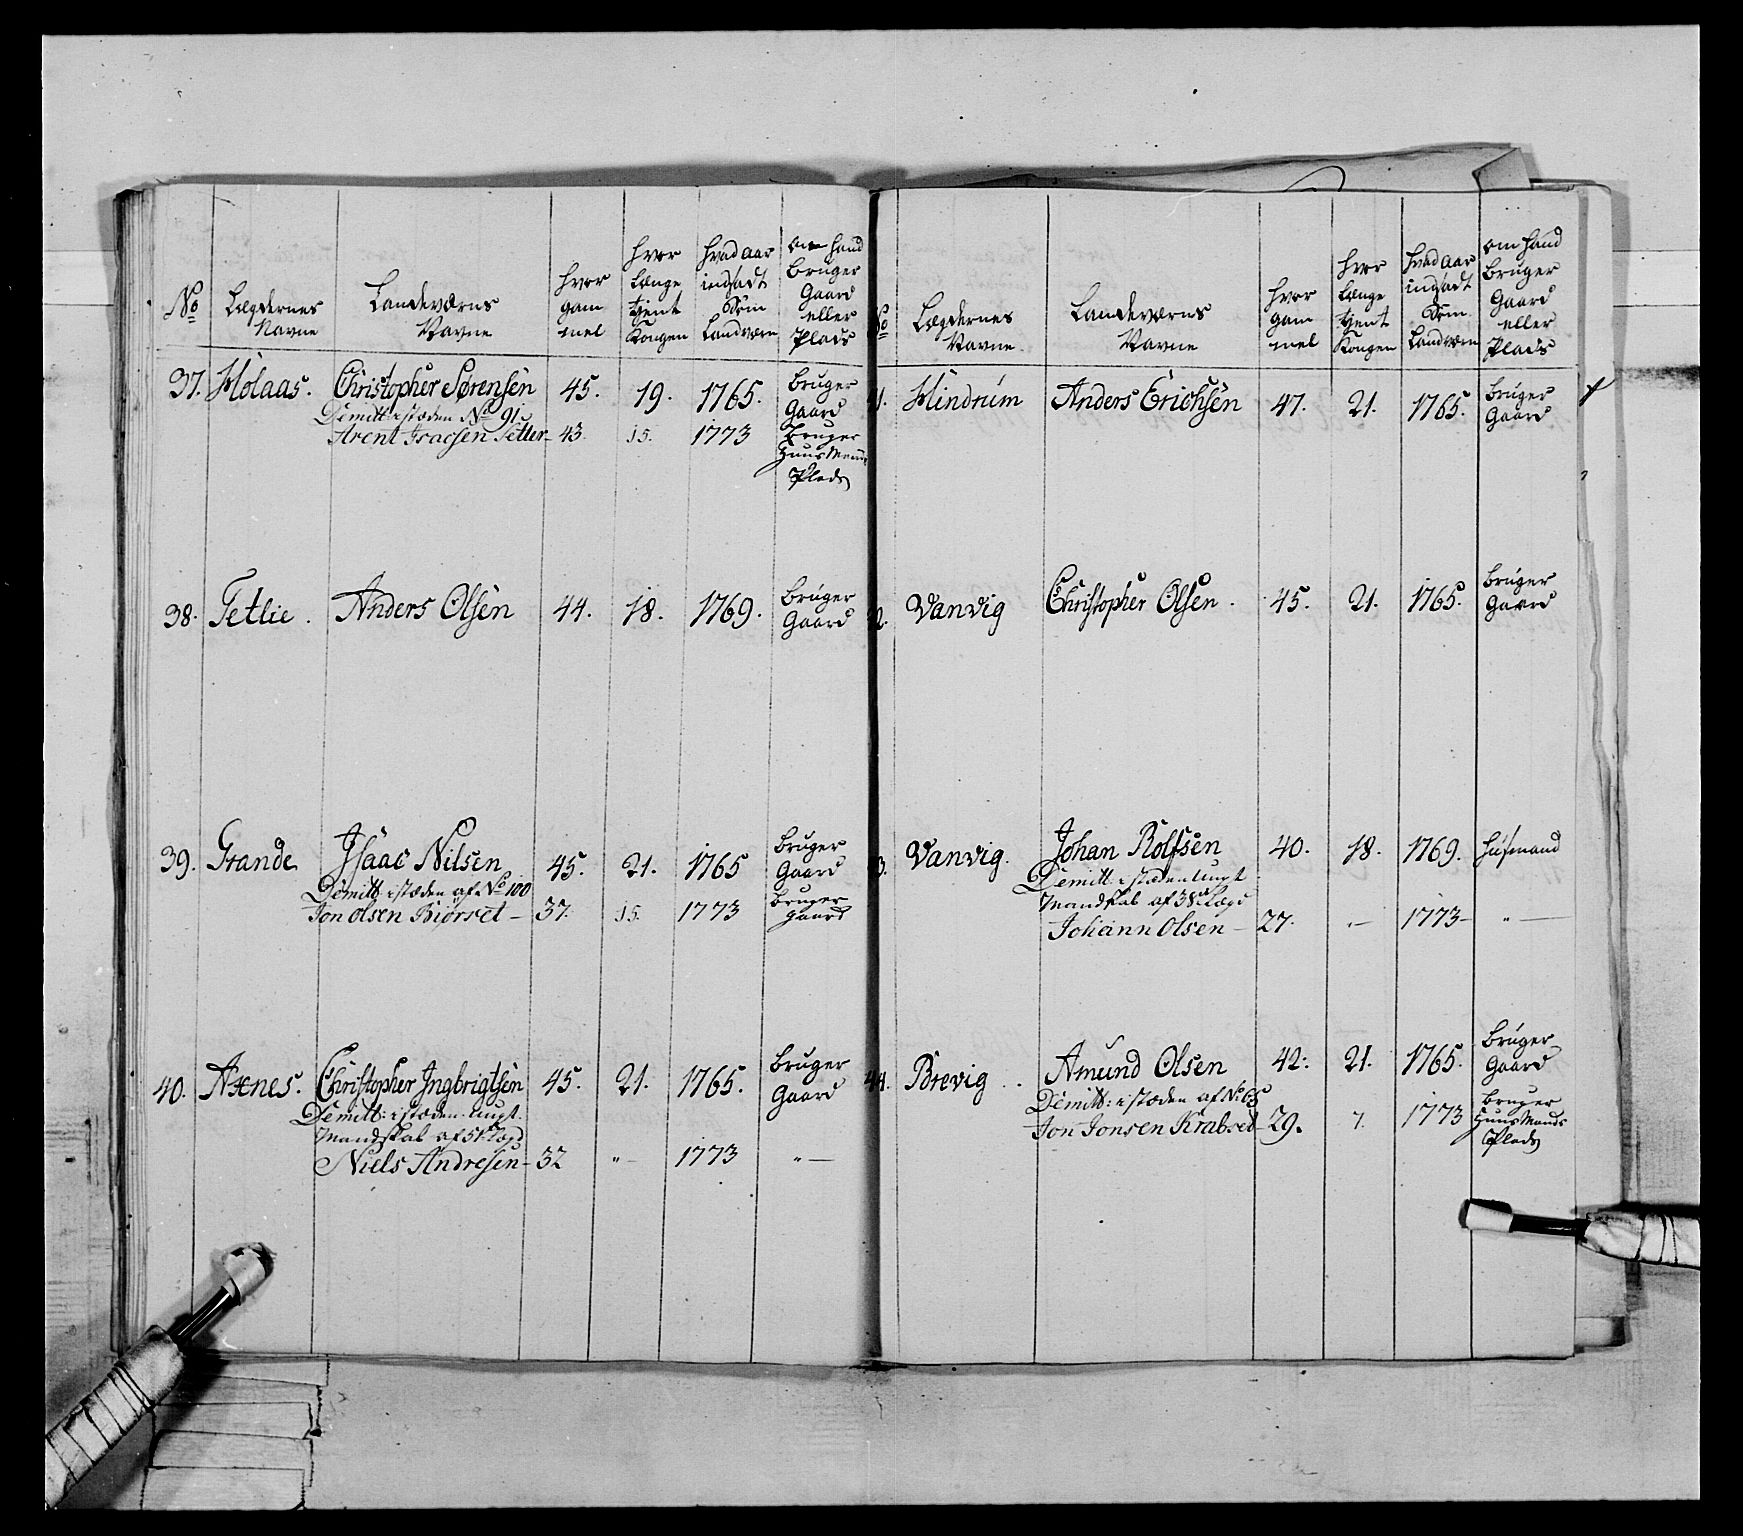 No
Lægdernes
Navne
Landeværns
Navne
hvor
gam
mel
hvor
længe
tjent
Kongen
hvad aar
indsadt
Som
Landværn
om hand
bruger
Gaard
eller
Plads
37. Molaas. Christopher Sørensen 45. 19. 1765. bruger
Gaard
Demitt: i stæden No 91
Arent Isacsen Setter 43. 15. 1773 bruger
Huus Mands
Plads
38. Tetlie. Anders Olsen 44. 18. 1769. bruger
Gaard
39. Grande Isaac Nilsen 45. 21. 1765 bruger
Gaard
Demitt: i stæden af No 100
Jon Olsen Biørset - 37. 15. 1773 bruger
gaard
40. Christopher Ingbrigtsen 45. 21. 1765. bruger
Gaard
Demitt: i stæden ungt
Mandskab af 51 Lægd
Niels Andresen - 32 " - 1773 " -
No
Lægdernes
Navne
Landeværns
Navne
hvor
gam
mel
hvor
længe
tjent
Kongen
hvad aar
indsadt
Som
Landværn
om hand
bruger
Gaard
eller
Plads
1. Mindrum Anders Erichsen 47. 21. 1765. bruger
Gaard
2. Vanvig Christopher Olsen. 45. 21. 1765. bruger
Gaard
3. Vanvig. Johan Rolfsen 40. 18. 1769. huusmand
Demitt: i stæden ungt
Mandskab af 38 Lægd
Johann Olsen - 27. " - 1773 - " -
44. Brevig Amund Olsen 42. 21. 1765. bruger
Gaard
Demitt: i stæden af No 65
Jon Jonsen Krabset - 29. 7. 1773 bruger
Huus Mands
Plads